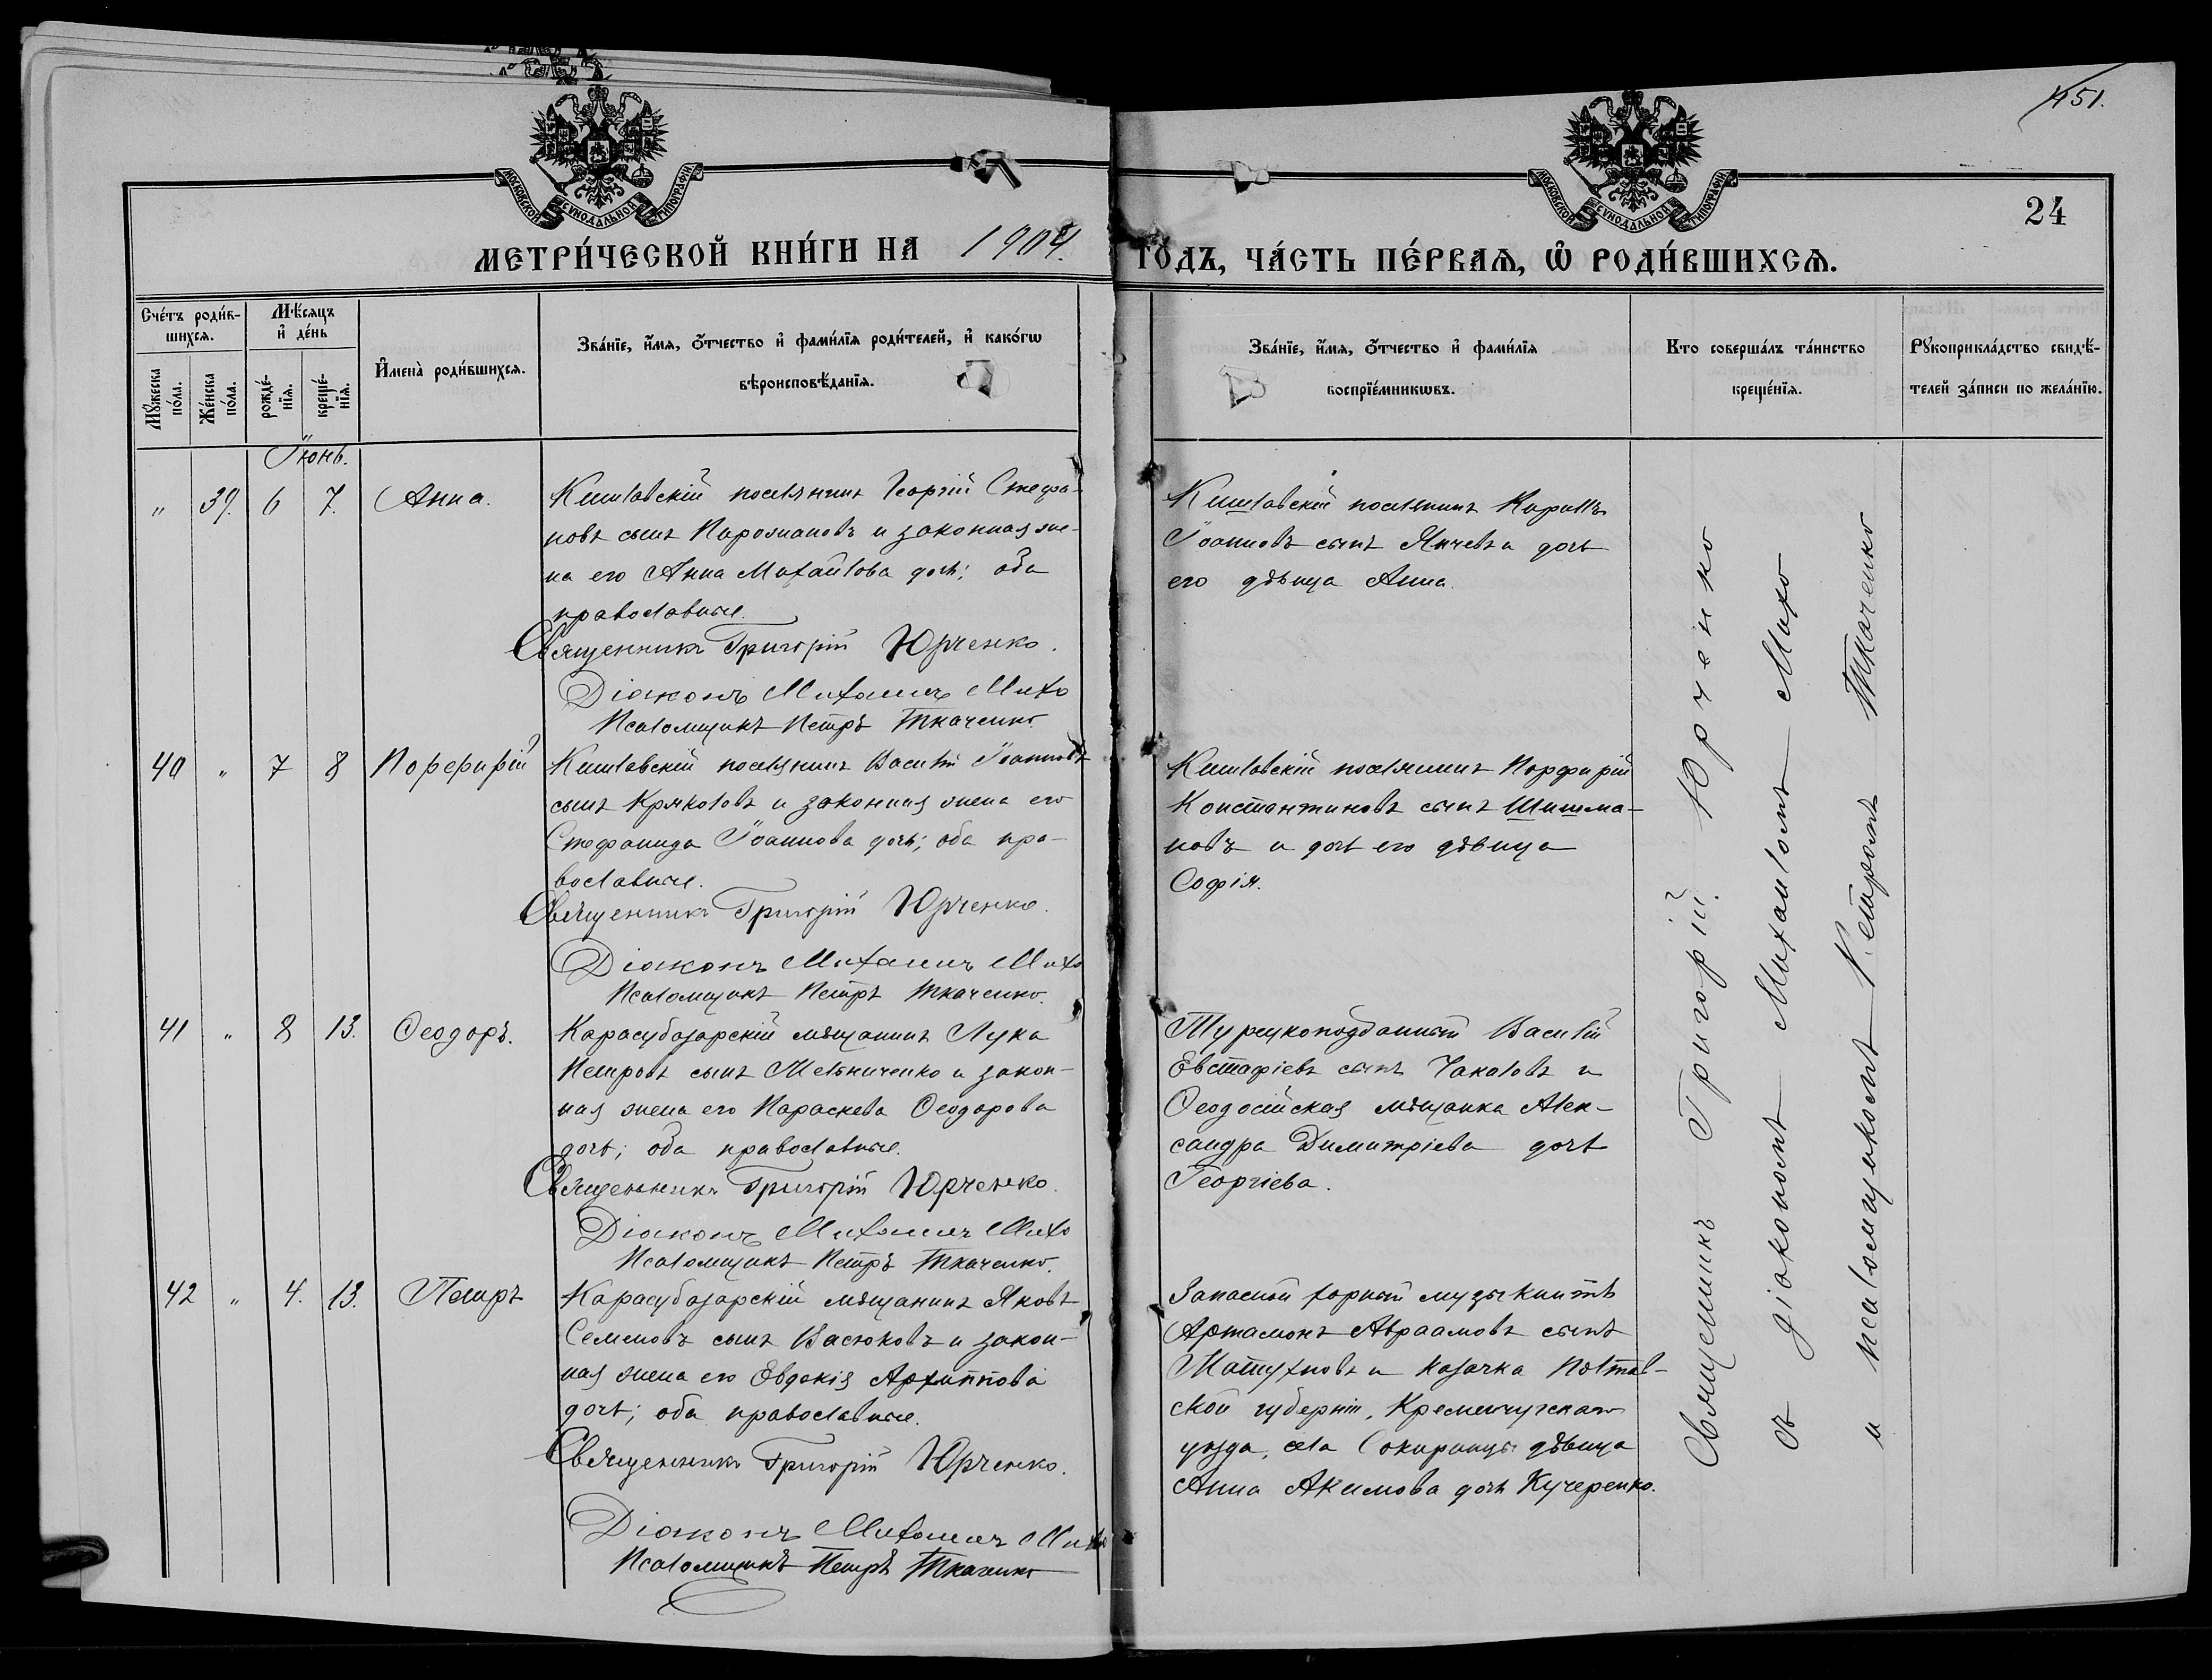 151.
24
МОСКОВСКОЙ СѴНОДАЛЬНОЙ ТИПОГРАФІИ
МОСКОВСКОЙ СѴНОДАЛЬНОЙ ТИПОГРАФІИ
МЕТРИ́ЧЕСКОЙ КНИ́ГИ НА 1904. ГО́ДЪ, ЧА́СТЬ ПЕ́РВАѦ, Ѡ҆ РОДИ́ВШИХСѦ.
Сче́тъ роди́в-
шихсѧ.
Мꙋ́жеска по́ла.
Же́нска по́ла.
Мѣ́сѧцъ и҆ де́нь
рожде́-нїѧ.
креще́-нїѧ.
И҆мена̀ роди́вшихсѧ.
Зва́нїе, и҆́мѧ, ѻ҆́тчество и҆ фами́лїѧ роди́телей, и҆ како́гѡ
вѣроисповѣ́данїѧ.
Зва́нїе, и҆́мѧ, ѻ҆́тчество и҆ фами́лїѧ
воспрїе́мникѡвъ.
Кто соверша́лъ та́инство
креще́нїѧ.
Рꙋкоприкла́дство свидѣ́-
телей за́писи по жела́нїю.
Іюнь.
„ 39. 6 7. Анна.
Кишлавскій поселянинъ Георгій Стефа-
новъ сынъ Паромановъ и законная же-
на его Анна Михайлова дочь; оба
православные.
Священникъ Григорій Юрченко.
Діаконъ Михаилъ Михо
Псаломщикъ Петръ Ткаченко.
Кишлавскій поселянинъ Кириллъ
Іоанновъ сынъ Янчевъ и дочь
его дѣвица Анна.
40 „ 7 8 Порфирій
Кишлавскій поселянинъ Василій Іоанновъ
сынъ Кряколовъ и законная жена его
Стефанида Іоаннова дочь; оба пра-
вославные.
Священникъ Григорій Юрченко.
Діаконъ Михаилъ Михо
Псаломщикъ Петръ Ткаченко.
Кишлавскій поселянинъ Порфирій
Константиновъ сынъ Шишма-
новъ и дочь его дѣвица
Софія.
41 „ 8 13. Ѳеодоръ.
Карасубазарскій мѣщанинъ Лука
Петровъ сынъ Мельниченко и закон-
ная жена его Параскева Ѳеодорова
дочь; оба православные.
Священникъ Григорій Юрченко.
Діаконъ Михаилъ Михо
Псаломщикъ Петръ Ткаченко.
Турецкоподданный Василій
Евстафіевъ сынъ Чакаловъ и
Ѳеодосійская мѣщанка Алек-
сандра Димитріева дочь
Георгіева.
42 „ 4. 13. Петръ
Карасубазарскій мѣщанинъ Яковъ
Семеновъ сынъ Васюковъ и закон-
ная жена его Евдокія Архиппова
дочь; оба православные.
Священникъ Григорій Юрченко.
Діаконъ Михаилъ Михо
Псаломщикъ Петръ Ткаченко
Запасной горный музыкантъ
Артамонъ Авраамовъ сынъ
Матухновъ и казачка Полтав-
ской губерніи, Кременчугскаго
уѣзда, села Сокиринцы дѣвица
Анна Акимова дочь Кучеренко.
Священникъ Григорій Юрченко
съ діакономъ Михаиломъ Михо
и псаломщикомъ Петромъ Ткаченко